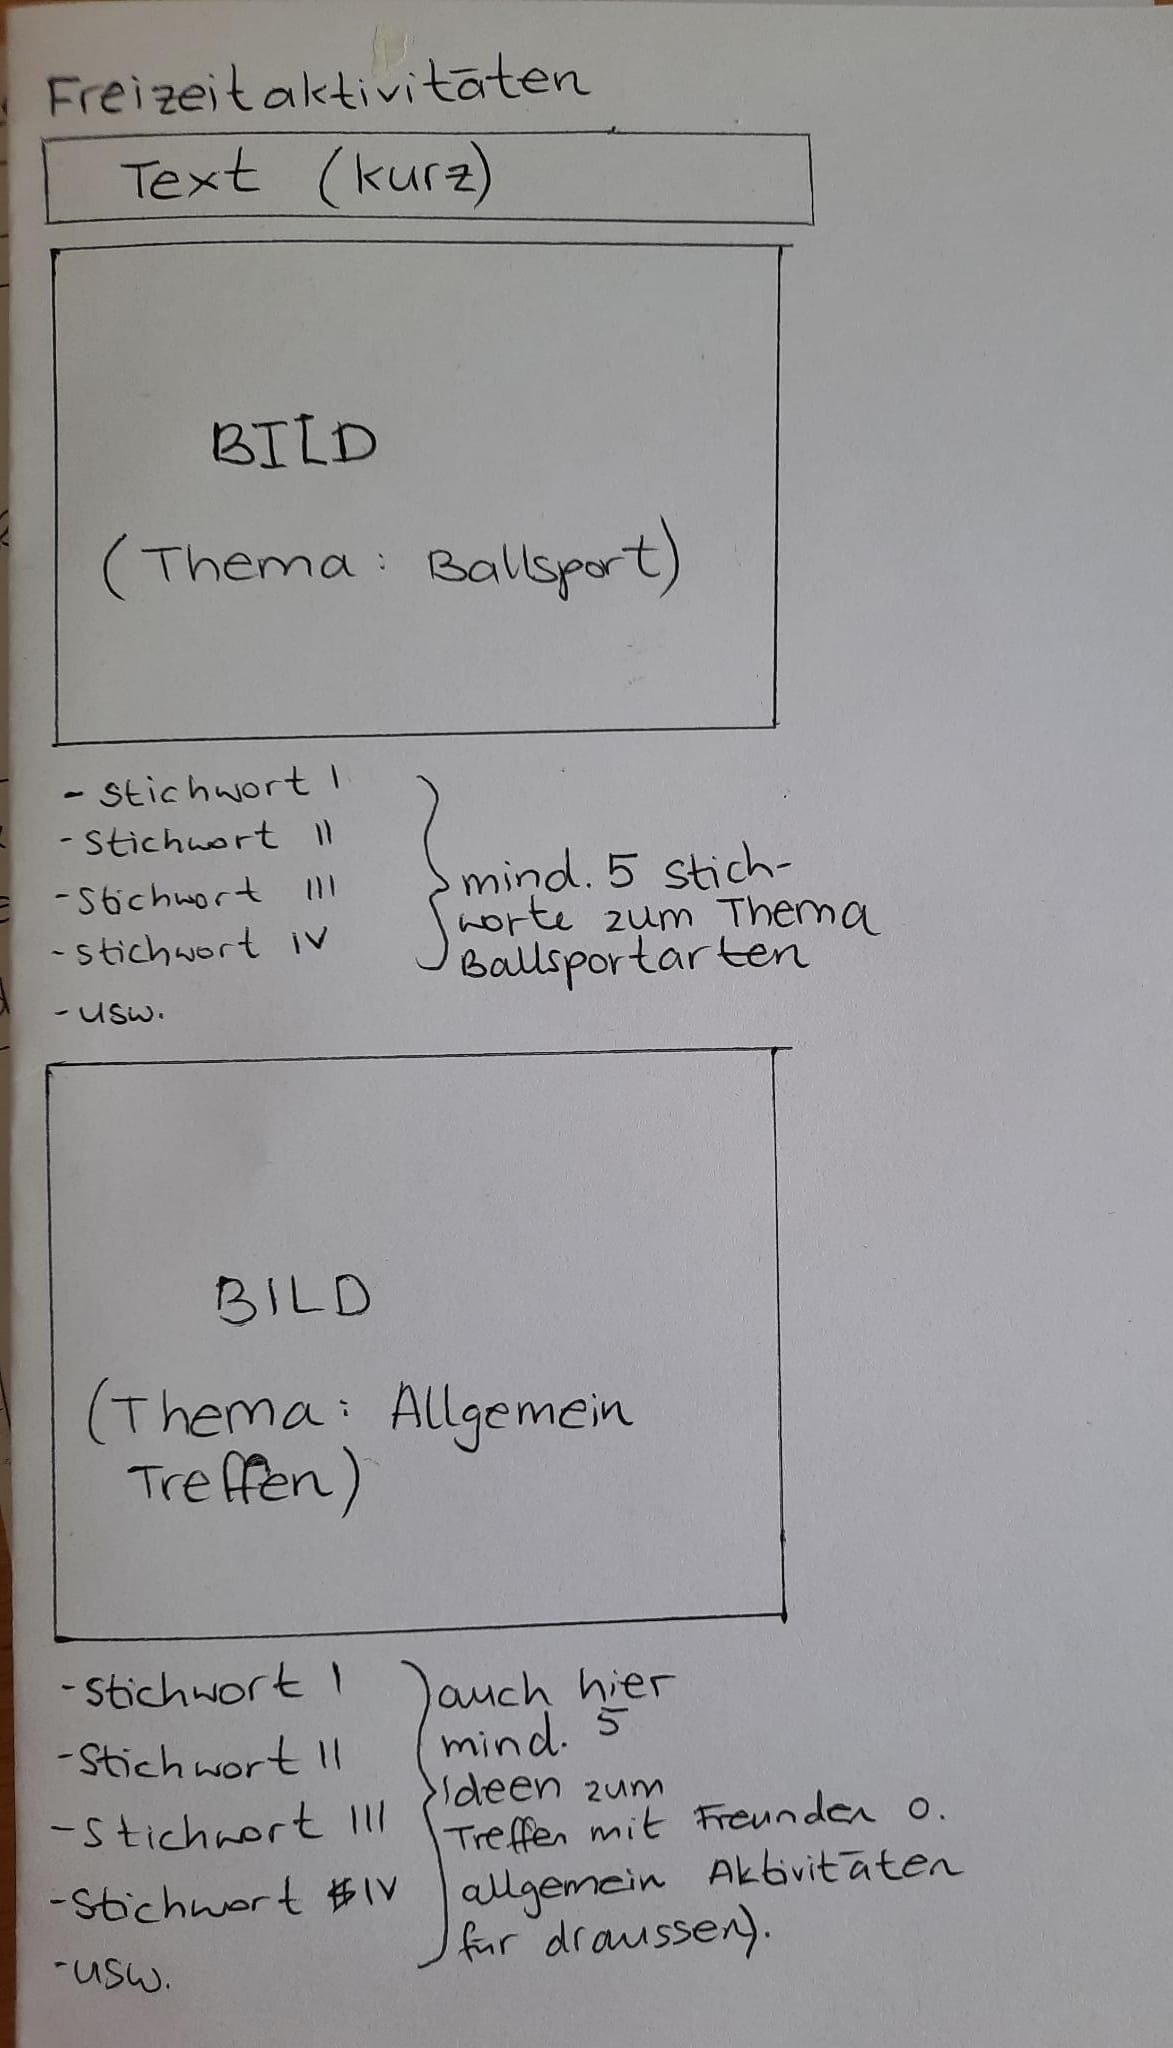 Freizeitaktivitäten
Text (kurz)
BILD
(Thema: Ballsport)
- Stichwort I
- Stichwort II
- Stichwort III
- Stichwort IV
- usw.
mind. 5 Stich-
worte zum Thema
Ballsportarten
BILD
(Thema: Allgemein
Treffen)
- Stichwort I
- Stichwort II
- Stichwort III
- Stichwort IV
- usw.
auch hier
mind. 5
Ideen zum
Treffen mit Freunden o.
allgemein Aktivitäten
für draussen).